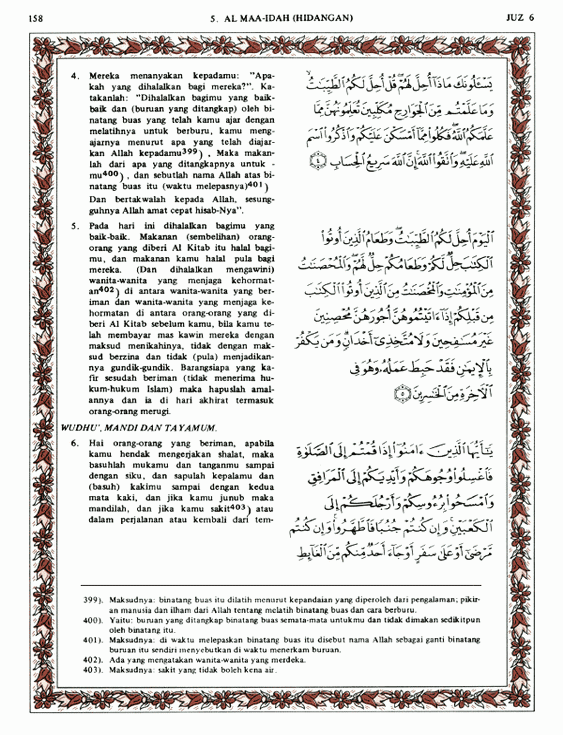 158
5. AL MAA-IDAH (HIDANGAN)
JUZ 6
4. Mereka menanyakan kepadamu: "Apa-
kah yang dihalalkan bagi mereka?". Ka-
takanlah: "Dihalalkan bagimu yang baik-
baik dan (buruan yang ditangkap) oleh bi-
natang buas yang telah kamu ajar dengan
melatihnya untuk berburu, kamu meng-
ajarnya menurut apa yang telah diajar-
kan Allah kepadamu399) , Maka makan-
lah dari apa yang ditangkapnya untuk -
mu400) , dan sebutlah nama Allah atas bi-
natang buas itu (waktu melepasnya)401)
Dan bertakwalah kepada Allah, sesung-
guhnya Allah amat cepat hisab-Nya".
يَسْـَٔلُونَكَ مَاذَآ أُحِلَّ لَهُمْ ۖ قُلْ أُحِلَّ لَكُمُ الطَّيِّبَٰتُ ۙ
وَمَا عَلَّمْتُم مِّنَ الْجَوَارِحِ مُكَلِّبِينَ تُعَلِّمُونَهُنَّ مِمَّا
عَلَّمَكُمُ اللَّهُ ۖ فَكُلُوا۟ مِمَّآ أَمْسَكْنَ عَلَيْكُمْ وَاذْكُرُوا۟ اسْمَ
اللَّهِ عَلَيْهِ ۖ وَاتَّقُوا۟ اللَّهَ ۚ إِنَّ اللَّهَ سَرِيعُ الْحِسَابِ ﴿٤﴾
5. Pada hari ini dihalalkan bagimu yang
baik-baik. Makanan (sembelihan) orang-
orang yang diberi Al Kitab itu halal bagi-
mu, dan makanan kamu halal pula bagi
mereka. (Dan dihalalkan mengawini)
wanita-wanita yang menjaga kehormat-
an402) di antara wanita-wanita yang ber-
iman dan wanita-wanita yang menjaga ke-
hormatan di antara orang-orang yang di-
beri Al Kitab sebelum kamu, bila kamu te-
lah membayar mas kawin mereka dengan
maksud menikahinya, tidak dengan mak-
sud berzina dan tidak (pula) menjadikan-
nya gundik-gundik. Barangsiapa yang ka-
fir sesudah beriman (tidak menerima hu-
kum-hukum Islam) maka hapuslah amal-
annya dan ia di hari akhirat termasuk
orang-orang merugi.
الْيَوْمَ أُحِلَّ لَكُمُ الطَّيِّبَٰتُ ۖ وَطَعَامُ الَّذِينَ أُوتُوا۟
الْكِتَٰبَ حِلٌّ لَّكُمْ وَطَعَامُكُمْ حِلٌّ لَّهُمْ ۖ وَالْمُحْصَنَٰتُ
مِنَ الْمُؤْمِنَٰتِ وَالْمُحْصَنَٰتُ مِنَ الَّذِينَ أُوتُوا۟ الْكِتَٰبَ
مِن قَبْلِكُمْ إِذَآ ءَاتَيْتُمُوهُنَّ أُجُورَهُنَّ مُحْصِنِينَ
غَيْرَ مُسَٰفِحِينَ وَلَا مُتَّخِذِىٓ أَخْدَانٍ ۗ وَمَن يَكْفُرْ
بِالْإِيمَٰنِ فَقَدْ حَبِطَ عَمَلُهُ وَهُوَ فِى
الْآخِرَةِ مِنَ الْخَٰسِرِينَ ﴿٥﴾
WUDHU', MANDI DAN TAYAMUM.
6. Hai orang-orang yang beriman, apabila
kamu hendak mengerjakan shalat, maka
basuhlah mukamu dan tanganmu sampai
dengan siku, dan sapulah kepalamu dan
(basuh) kakimu sampai dengan kedua
mata kaki, dan jika kamu junub maka
mandilah, dan jika kamu sakit403) atau
dalam perjalanan atau kembali dari tem-
يَٰٓأَيُّهَا الَّذِينَ ءَامَنُوٓا۟ إِذَا قُمْتُمْ إِلَى الصَّلَوٰةِ
فَاغْسِلُوا۟ وُجُوهَكُمْ وَأَيْدِيَكُمْ إِلَى الْمَرَافِقِ
وَامْسَحُوا۟ بِرُءُوسِكُمْ وَأَرْجُلَكُمْ إِلَى
الْكَعْبَيْنِ ۚ وَإِن كُنتُمْ جُنُبًا فَاطَّهَّرُوا۟ ۚ وَإِن كُنتُم
مَّرْضَىٰٓ أَوْ عَلَىٰ سَفَرٍ أَوْ جَآءَ أَحَدٌ مِّنكُم مِّنَ الْغَآئِطِ
399). Maksudnya: binatang buas itu dilatih menurut kepandaian yang diperoleh dari pengalaman; pikir-
an manusia dan ilham dari Allah tentang melatih binatang buas dan cara berburu.
400). Yaitu: buruan yang ditangkap binatang buas semata-mata untukmu dan tidak dimakan sedikitpun
oleh binatang itu.
401). Maksudnya: di waktu melepaskan binatang buas itu disebut nama Allah sebagai ganti binatang
buruan itu sendiri menyebutkan di waktu menerkam buruan.
402). Ada yang mengatakan wanita-wanita yang merdeka.
403). Maksudnya: sakit yang tidak boleh kena air.